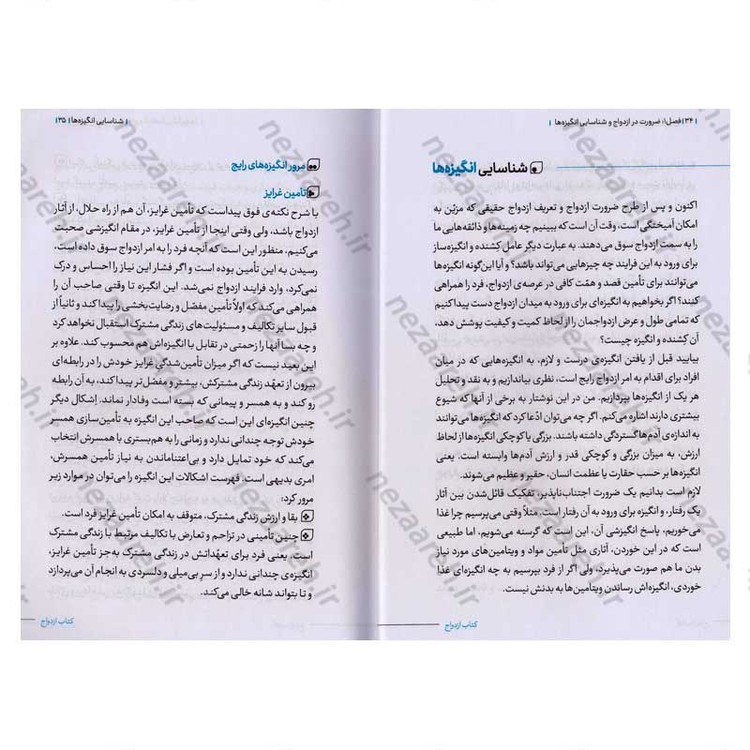 ۳۴ | فصل۱: ضرورت در ازدواج و شناسایی انگیزه‌ها |
شناسایی انگیزه‌ها
اکنون و پس از طرح ضرورت ازدواج و تعریف ازدواج حقیقی که مزیّن به
امکان آمیختگی است، وقت آن است که ببینیم چه زمینه‌ها و ذائقه‌هایی ما
را به سمت ازدواج سوق می‌دهند. به عبارت دیگر عامل کِشنده و انگیزه‌ساز
برای ورود به این فرایند چه چیزهایی می‌تواند باشد؟ و آیا این‌گونه انگیزه‌ها
می‌توانند برای تأمین قصد و همّت کافی در عرصه‌ی ازدواج، فرد را همراهی
کنند؟ اگر بخواهیم به انگیزه‌ای برای ورود به میدان ازدواج دست پیدا کنیم
که تمامی طول و عرض ازدواجمان را از لحاظ کمیت و کیفیت پوشش دهد،
آن کِشنده و انگیزه چیست؟
بیایید قبل از یافتن انگیزه‌ی درست و لازم، به انگیزه‌هایی که در میان
افراد برای اقدام به امر ازدواج رایج است، نظری بیاندازیم و به نقد و تحلیل
هر یک از انگیزه‌ها بپردازیم. من در این نوشتار به برخی از آنها که شیوع
بیشتری دارند اشاره می‌کنم. اگر چه می‌توان ادّعا کرد که انگیزه‌ها می‌توانند
به اندازه‌ی آدم‌ها گستردگی داشته باشند. بزرگی یا کوچکی انگیزه‌ها از لحاظ
ارزش، به میزان بزرگی و کوچکی قدر و ارزش آدم‌ها وابسته است. یعنی
انگیزه‌ها بر حسب حقارت یا عظمت انسان، حقیر و عظیم می‌شوند.
لازم است بدانیم یک ضرورت اجتناب‌ناپذیر، تفکیک قائل‌شدن بین آثار
یک رفتار، و انگیزه برای ورود به آن رفتار است. مثلاً وقتی می‌پرسیم چرا غذا
می‌خوریم، پاسخ انگیزشی آن، این است که گرسنه می‌شویم. اما طبیعی
است که در این خوردن، آثاری مثل تأمین مواد و ویتامین‌های مورد نیاز
بدن ما هم صورت می‌پذیرد، ولی اگر از فرد بپرسیم به چه انگیزه‌ای غذا
خوردی، انگیزه‌اش رساندن ویتامین‌ها به بدنش نیست.
کتاب ازدواج
| شناسایی انگیزه‌ها | ۳۵ |
مرور انگیزه‌های رایج
تأمین غرایز
با شرح نکته‌ی فوق پیداست که تأمین غرایز، آن هم از راه حلال، از آثار
ازدواج باشد، ولی وقتی اینجا از تأمین غرایز، در مقام انگیزشی صحبت
می‌کنیم، منظور این است که آنچه فرد را به امر ازدواج سوق داده است،
رسیدن به این تأمین بوده است و اگر فشار این نیاز را احساس و درک
نمی‌کرد، وارد فرایند ازدواج نمی‌شد. این انگیزه تا وقتی صاحب آن را
همراهی می‌کند که اولاً تأمین مفصّل و رضایت‌بخشی را پیدا کند و ثانیاً از
قبول سایر تکالیف و مسئولیت‌های زندگی مشترک استقبال نخواهد کرد
و چه بسا آنها را زحمتی در تقابل با انگیزه‌اش هم محسوب کند. علاوه بر
این بعید نیست که اگر میزان تأمین‌شدگیِ غرایز خودش را در رابطه‌ای
بیرون از تعهّد زندگی مشترکش، بیشتر و مفصّل‌تر پیدا کند، به آن رابطه
رو کند و به همسر و پیمانی که بسته است وفادار نماند. اِشکال دیگر
چنین انگیزه‌ای این است که صاحب این انگیزه به تأمین‌سازی همسر
خودش توجه چندانی ندارد و زمانی را به هم‌بستری با همسرش انتخاب
می‌کند که خود تمایل دارد و بی‌اعتنا ماندن به نیاز تأمین همسرش،
امری بدیهی است. فهرست اشکالات این انگیزه را می‌توان در موارد زیر
مرور کرد:
بقا و ارزش زندگی مشترک، متوقف به امکان تأمین غرایز فرد است.
چنین تأمینی در تزاحم و تعارض با تکالیف مرتبط با زندگی مشترک
است. یعنی فرد برای تعهّداتش در زندگی مشترک به‌جز تأمین غرایز،
انگیزه‌ی چندانی ندارد و از سرِ بی‌میلی و دلسردی به انجام آن می‌پردازد
و تا بتواند شانه خالی می‌کند.
کتاب ازدواج
nezaareh.ir